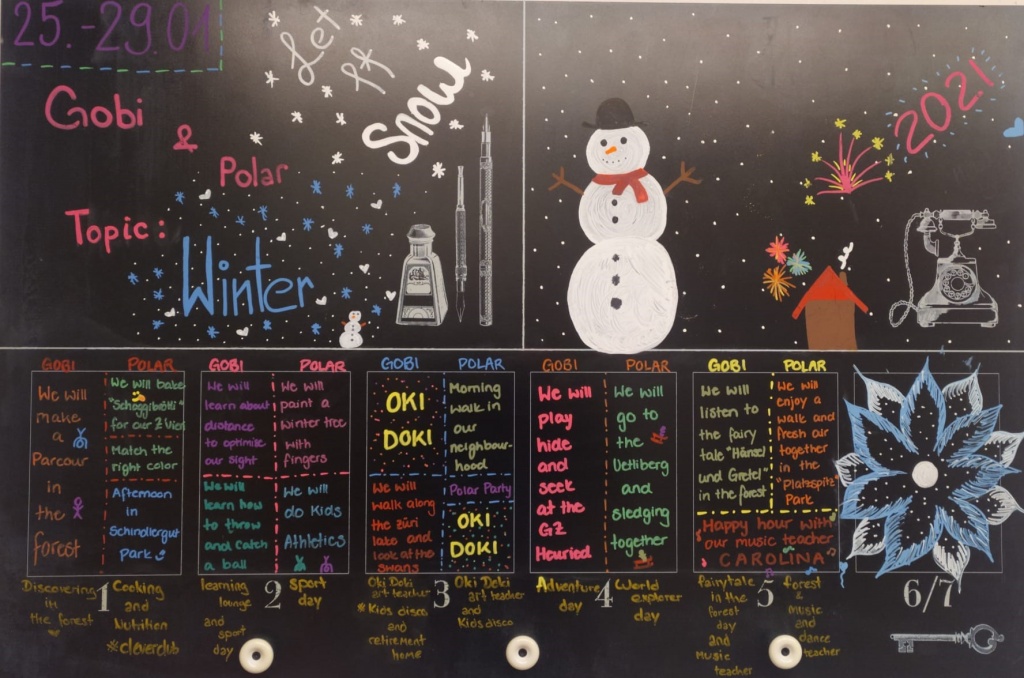 25.-29.01
Let
it
Snow
Gobi
&
Polar
Topic:
Winter
2021
GOBI
We will
make
a
Parcour
in
the
forest
POLAR
We will bake
"Schoggibrötli"
for our Z'Vieri
Match the
right color
Afternoon
in
Schindlergut
Park
GOBI
We will
learn about
distance
to optimise
our sight
We will
learn how
to throw
and catch
a ball
POLAR
We will
paint a
winter tree
with
fingers
We will
do Kids
Athletics
GOBI
OKI
DOKI
We will
walk along
the Züri
lake and
look at the
swans
POLAR
Morning
walk in
our
neighbour-
hood
Polar Party
OKI
DOKI
GOBI
We will
play
hide
and
seek
at the
GZ
Heuried
POLAR
We will
go to
the
Uetliberg
and
sledging
together
GOBI
We will
listen to
the fairy
tale "Hänsel
und Gretel"
in the forest
POLAR
We will
enjoy a
walk and
fresh air
together
in the
"Platzspitz"
Park
Happy hour with
our music teacher
CAROLINA
Discovering
in
the forest
1
Cooking
and
Nutrition
*cleverclub
learning
lounge
and
sport
day
2
sport
day
Oki Doki
art teacher
*Kids disco
and
retirement
home
3
Oki Doki
art teacher
and
Kids disco
Adventure
day
4
World
explorer
day
fairytale
in the
forest
day
and
Music
teacher
5
forest
&
music
and
dance
teacher
6/7